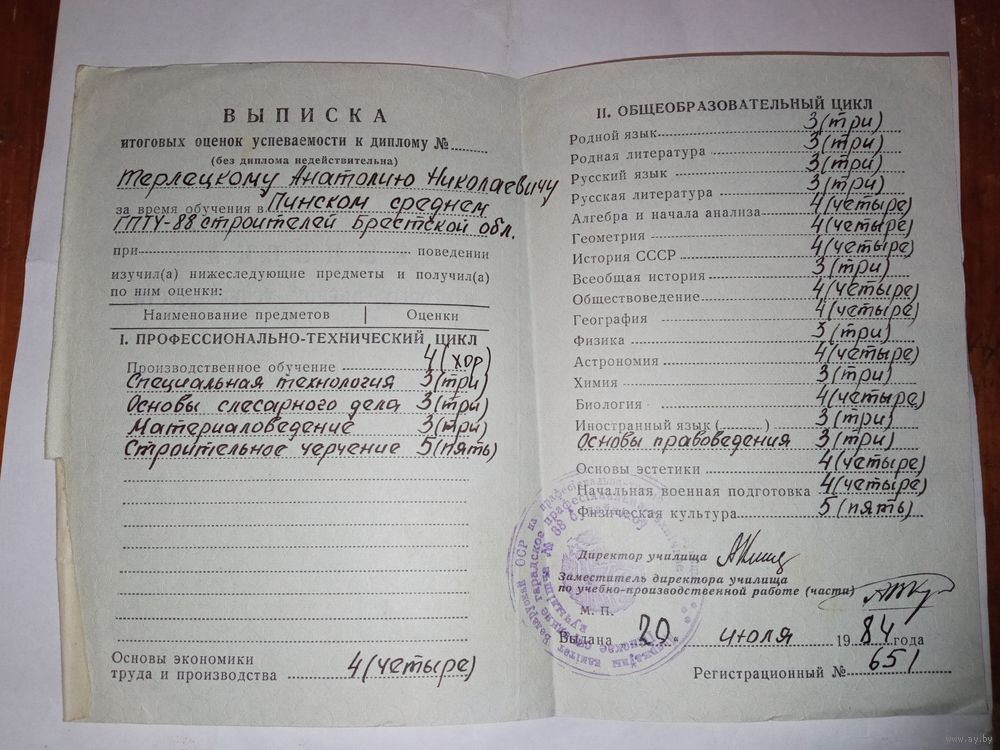 ВЫПИСКА
итоговых оценок успеваемости к диплому №
(без диплома недействительна)
Терлецкому Анатолию Николаевичу
за время обучения в Пинском среднем
ГПТУ-88 строителей Брестской обл.
при поведении
изучил(а) нижеследующие предметы и получил(а)
по ним оценки:
Наименование предметов | Оценки
I. ПРОФЕССИОНАЛЬНО-ТЕХНИЧЕСКИЙ ЦИКЛ
Производственное обучение 4 (хор)
Специальная технология 3 (три)
Основы слесарного дела 3 (три)
Материаловедение 3 (три)
Строительное черчение 5 (пять)
Основы экономики
труда и производства 4 (четыре)
II. ОБЩЕОБРАЗОВАТЕЛЬНЫЙ ЦИКЛ
Родной язык 3 (три)
Родная литература 3 (три)
Русский язык 3 (три)
Русская литература 3 (три)
Алгебра и начала анализа 4 (четыре)
Геометрия 4 (четыре)
История СССР 4 (четыре)
Всеобщая история 3 (три)
Обществоведение 4 (четыре)
География 4 (четыре)
Физика 3 (три)
Астрономия 4 (четыре)
Химия 3 (три)
Биология 4 (четыре)
Иностранный язык ( ) 3 (три)
Основы правоведения 3 (три)
Основы эстетики 4 (четыре)
Начальная военная подготовка 4 (четыре)
Физическая культура 5 (пять)
Директор училища
Заместитель директора училища
по учебно-производственной работе (части)
М. П.
Выдана 20 „ июля 1984 года
Регистрационный № 651
www.ay.by